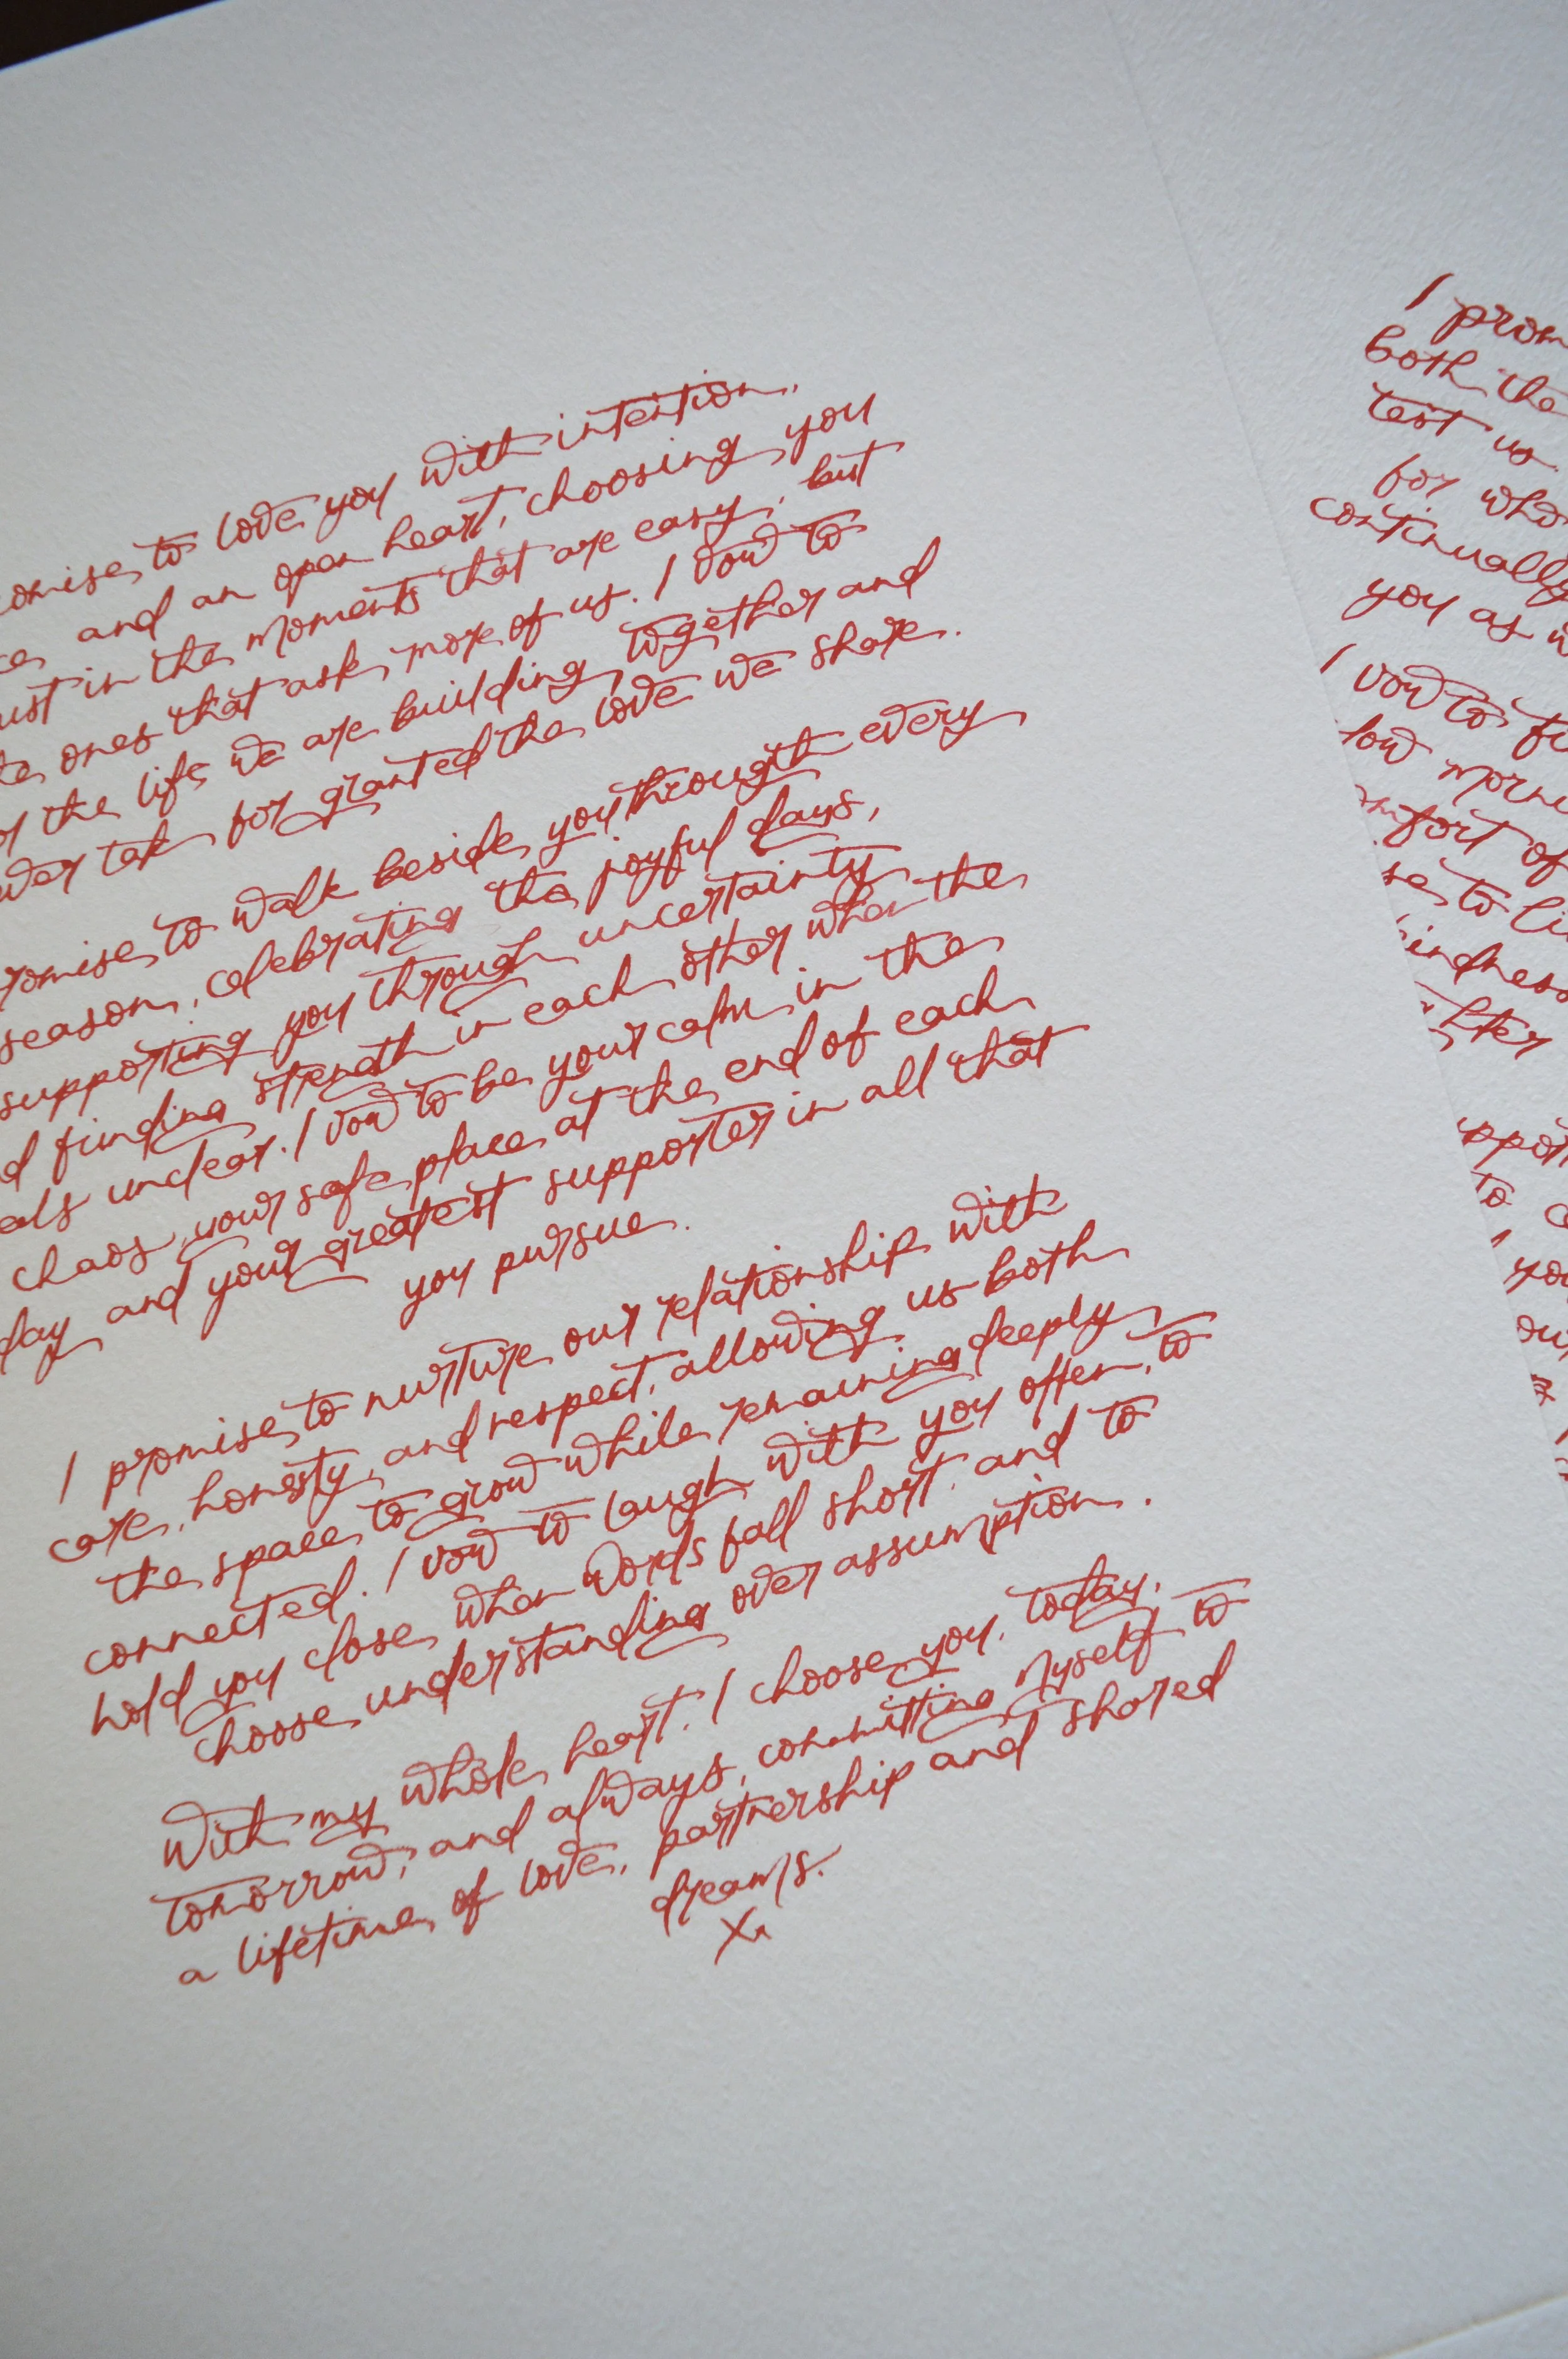 omise to love you with intention,
and an open heart, choosing you
ust in the moments that are easy, but
ones that ask more of us. I vow to
the life we are building together and
ver take for granted the love we share.
romise to walk beside you through every
season, celebrating the joyful days,
supporting you through uncertainty
d finding strength in each other when the
unclear. I vow to be your calm in the
chaos, your safe place at the end of each
day and your greatest supporter in all that
you pursue.
I promise to nurture our relationship with
care, honesty, and respect, allowing us both
the space to grow while remaining deeply
connected. I vow to laugh with you often, to
hold you close when words fall short, and to
choose understanding over assumption.
With my whole heart, I choose you, today,
tomorrow, and always, committing myself to
a lifetime of love, partnership and shared
dreams.
X
I prom
both the
test us.
for who
continually
you as w
I vow to fi
low morni
mfort of
se to li
indness
ppor
to c
you
our